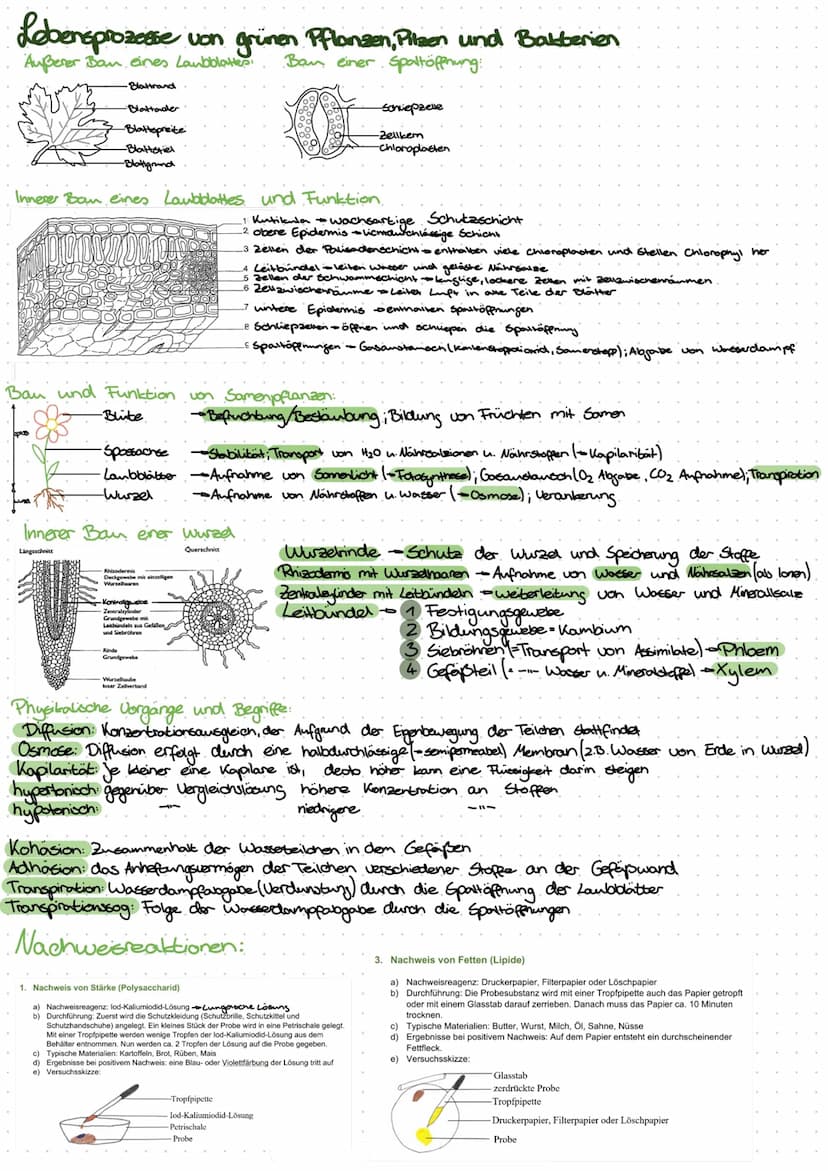 Lebensprozesse von grünen Pflanzen, Pilzen und Bakterien
Äußerer Bau eines Laubblattes:
Blattrand
Blattader
Blattspreite
Blattstiel
Blattgrund
Bau einer Spaltöffnung:
Schließzelle
Zellkern
Chloroplasten
Innerer Bau eines Laubblattes und Funktion
1 Kutikula → wachsartige Schutzschicht
2 obere Epidermis → lichtdurchlässige Schicht
3 Zellen der Palisadenschicht → enthalten viele Chloroplasten und stellen Chlorophyl her
4 Leitbündel → leiten Wasser und gelöste Nährsalze
5 Zellen der Schwammschicht → länglige, lockere Zellen mit Zellzwischenräumen
6 Zellzwischenräume → Leiten Luft in alle Teile der Blätter
7 untere Epidermis → enthalten Spaltöffnungen
8 Schließzellen → öffnen und schließen die Spaltöffnung
9 Spaltöffnungen → Gasaustausch (Kohlenstoffdioxid, Sauerstoff); Abgabe von Wasserdampf
Bau und Funktion von Samenpflanzen:
Blüte → Befruchtung/Bestäubung; Bildung von Früchten mit Samen
Sprossachse → Stabilität; Transport von H2O u. Nährsalzionen u. Nährstoffen (→ Kapilarität)
Laubblätter → Aufnahme von Sonnenlicht (→ Fotosynthese); Gasaustausch (O2 Abgabe, CO2 Aufnahme); Transpiration
Wurzel → Aufnahme von Nährstoffen u. Wasser (→ Osmose); Verankerung
Innerer Bau einer Wurzel
Längsschnitt
Querschnitt
Rhizodermis
Deckgewebe mit einzelligen
Wurzelhaaren
Zentralzylinder
Grundgewebe mit
Leitbündeln aus Gefäßen
und Siebröhren
Rinde
Grundgewebe
Wurzelhaube
loser Zellverband
Wurzelrinde → Schutz der Wurzel und Speicherung der Stoffe
Rhizodermis mit Wurzelhaaren → Aufnahme von Wasser und Nährsalzen (als Ionen)
Zentralzylinder mit Leitbündeln → Weiterleitung von Wasser und Mineralsalze
Leitbündel → 1 Festigungsgewebe
2 Bildungsgewebe = Kambium
3 Siebröhren (= Transport von Assimilate) → Phloem
4 Gefäßteil (= -"- Wasser u. Mineralstoffe) → Xylem
Physikalische Vorgänge und Begriffe:
Diffusion: Konzentrationsausgleich, der Aufgrund der Eigenbewegung der Teilchen stattfindet
Osmose: Diffusion erfolgt durch eine halbdurchlässige (→ semipermeabel) Membran (z.B. Wasser von Erde in Wurzel)
Kapilarität: je kleiner eine Kapilare ist, desto höher kann eine Flüssigkeit darin steigen
hypertonisch: gegenüber Vergleichslösung höhere Konzentration an Stoffen
hypotonisch: -"- niedrigere -"-
Kohäsion: Zusammenhalt der Wasserteilchen in dem Gefäßen
Adhäsion: das Anheftungsvermögen der Teilchen verschiedener Stoffe an der Gefäßwand
Transpiration: Wasserdampfabgabe (Verdunstung) durch die Spaltöffnung der Laubblätter
Transpirationssog: Folge der Wasserdampfabgabe durch die Spaltöffnungen
Nachweisreaktionen:
1. Nachweis von Stärke (Polysaccharid)
a) Nachweisreagenz: Iod-Kaliumiodid-Lösung → Lungosche Lösung
b) Durchführung: Zuerst wird die Schutzkleidung (Schutzbrille, Schutzkittel und
Schutzhandschuhe) angelegt. Ein kleines Stück der Probe wird in eine Petrischale gelegt.
Mit einer Tropfpipette werden wenige Tropfen der Iod-Kaliumiodid-Lösung aus dem
Behälter entnommen. Nun werden ca. 2 Tropfen der Lösung auf die Probe gegeben.
c) Typische Materialien: Kartoffeln, Brot, Rüben, Mais
d) Ergebnisse bei positivem Nachweis: eine Blau- oder Violettfärbung der Lösung tritt auf
e) Versuchsskizze:
Tropfpipette
Iod-Kaliumiodid-Lösung
Petrischale
Probe
3. Nachweis von Fetten (Lipide)
a) Nachweisreagenz: Druckerpapier, Filterpapier oder Löschpapier
b) Durchführung: Die Probesubstanz wird mit einer Tropfpipette auch das Papier getropft
oder mit einem Glasstab darauf zerrieben. Danach muss das Papier ca. 10 Minuten
trocknen.
c) Typische Materialien: Butter, Wurst, Milch, Öl, Sahne, Nüsse
d) Ergebnisse bei positivem Nachweis: Auf dem Papier entsteht ein durchscheinender
Fettfleck.
e) Versuchsskizze:
Glasstab
zerdrückte Probe
Tropfpipette
Druckerpapier, Filterpapier oder Löschpapier
Probe